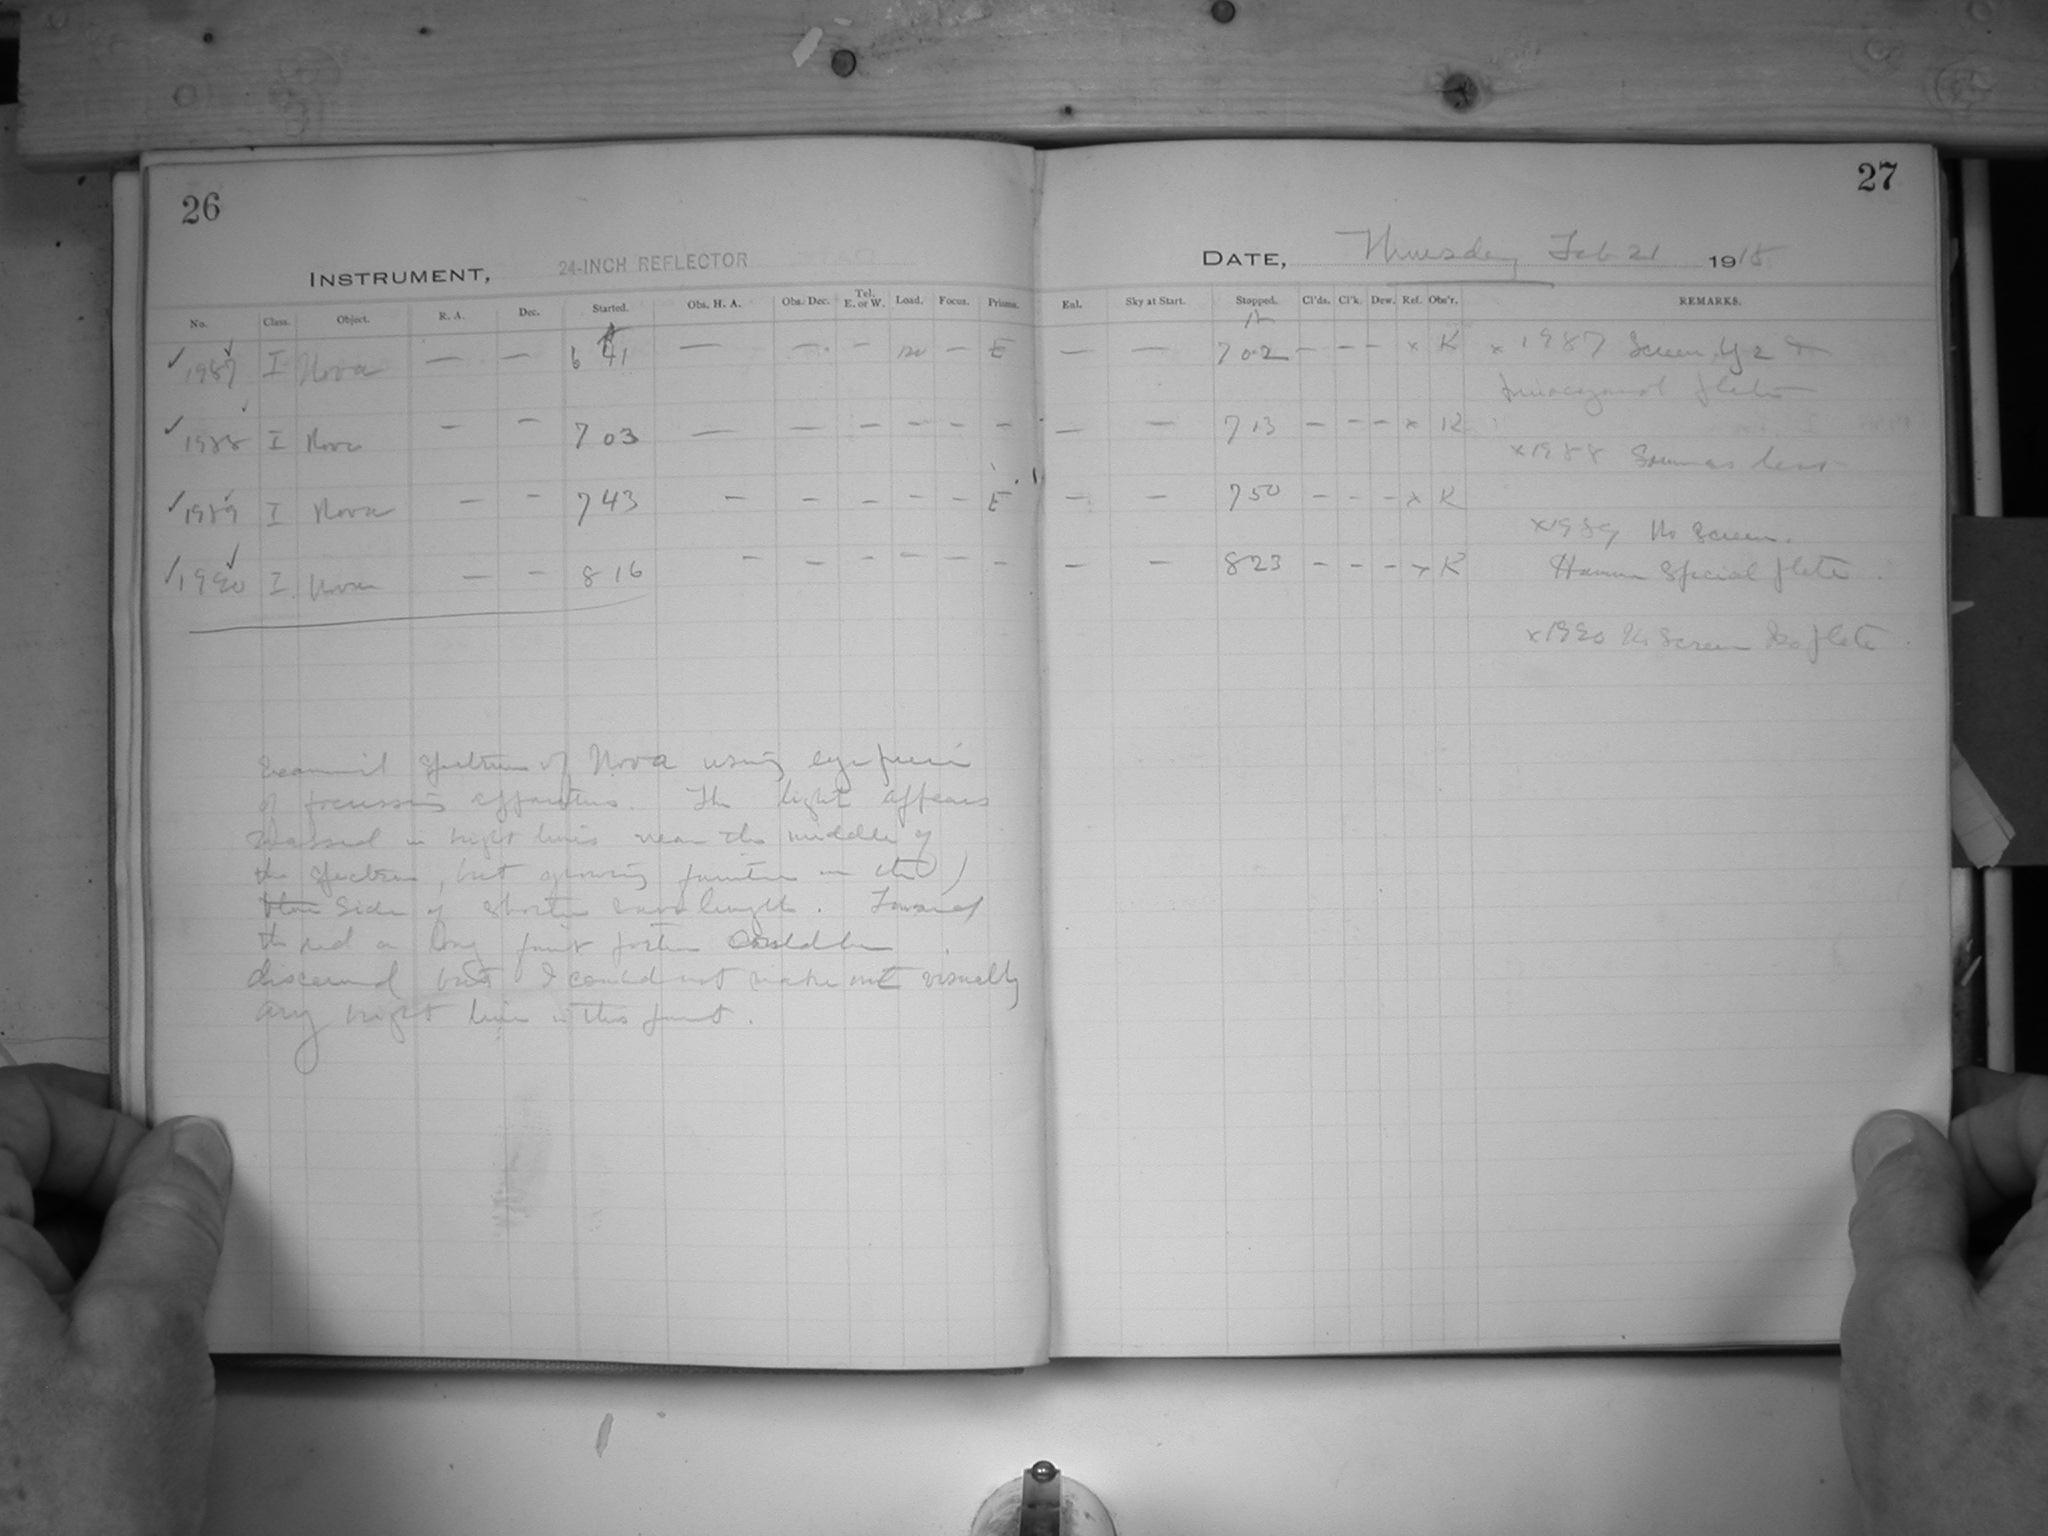 26
27
INSTRUMENT, 24-INCH REFLECTOR
DATE, Thursday Feb 21 1918
No. Class. Object. R. A. Dec. Started. Obs. H. A. Obs. Dec. Tel. E. or W. Load. Focus. Prisms. Enl. Sky at Start. Stopped. Cl'ds. Cl'k. Dew. Ref. Obs'r. REMARKS.
1987 I Nova — — 6 41 — — — — E — — 7 02 — — — x K x 1987 Screen
plate
1988 I Nova — — 7 03 — — — — — — — — 7 13 — — — x K
x1988 Same as last
1989 I Nova — — 7 43 — — — — — E — — 7 50 — — — x K
x1989 No Screen.
Hammer Special plate.
1990 I Nova — — 8 16 — — — — — — — — 8 23 — — — x K
x1990 No Screen Iso plate.
Examined spectrum of Nova using eyepiece
of focussing apparatus. The light appears
massed in bright lines near the middle of
the spectrum, but growing fainter on the
blue side of shorter wave length. Toward
the red a long faint portion could be
discerned but I could not make out visually
any bright line in this part.